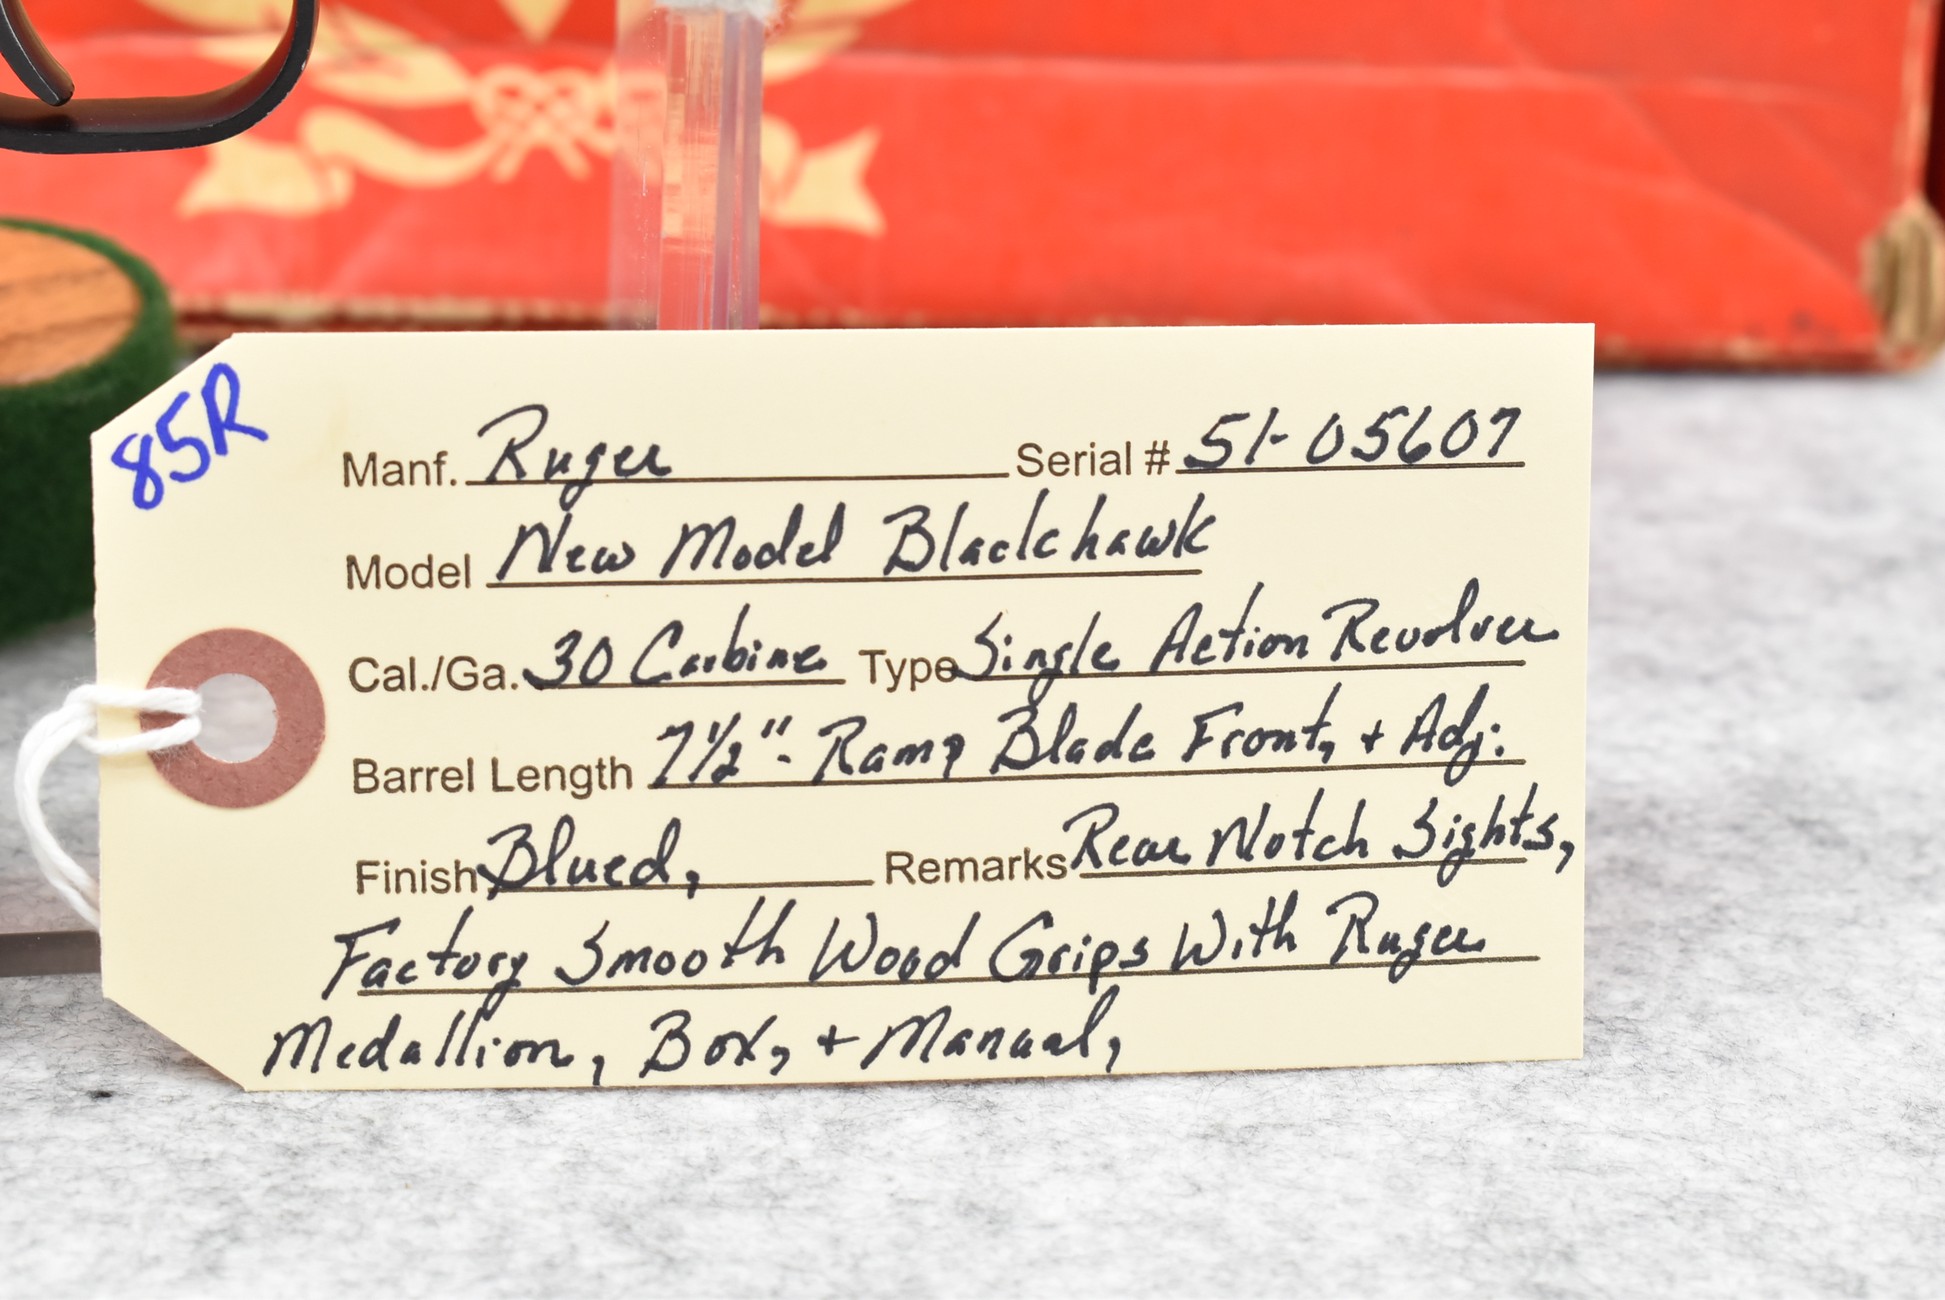 85R
Manf. Ruger Serial # 51-05607
Model New Model Blackhawk
Cal./Ga. 30 Carbine Type Single Action Revolver
Barrel Length 7½"- Ramp Blade Front, + Adj.
Finish Blued, Remarks Rear Notch Sights,
Factory Smooth Wood Grips With Ruger
Medallion, Box, + Manual,